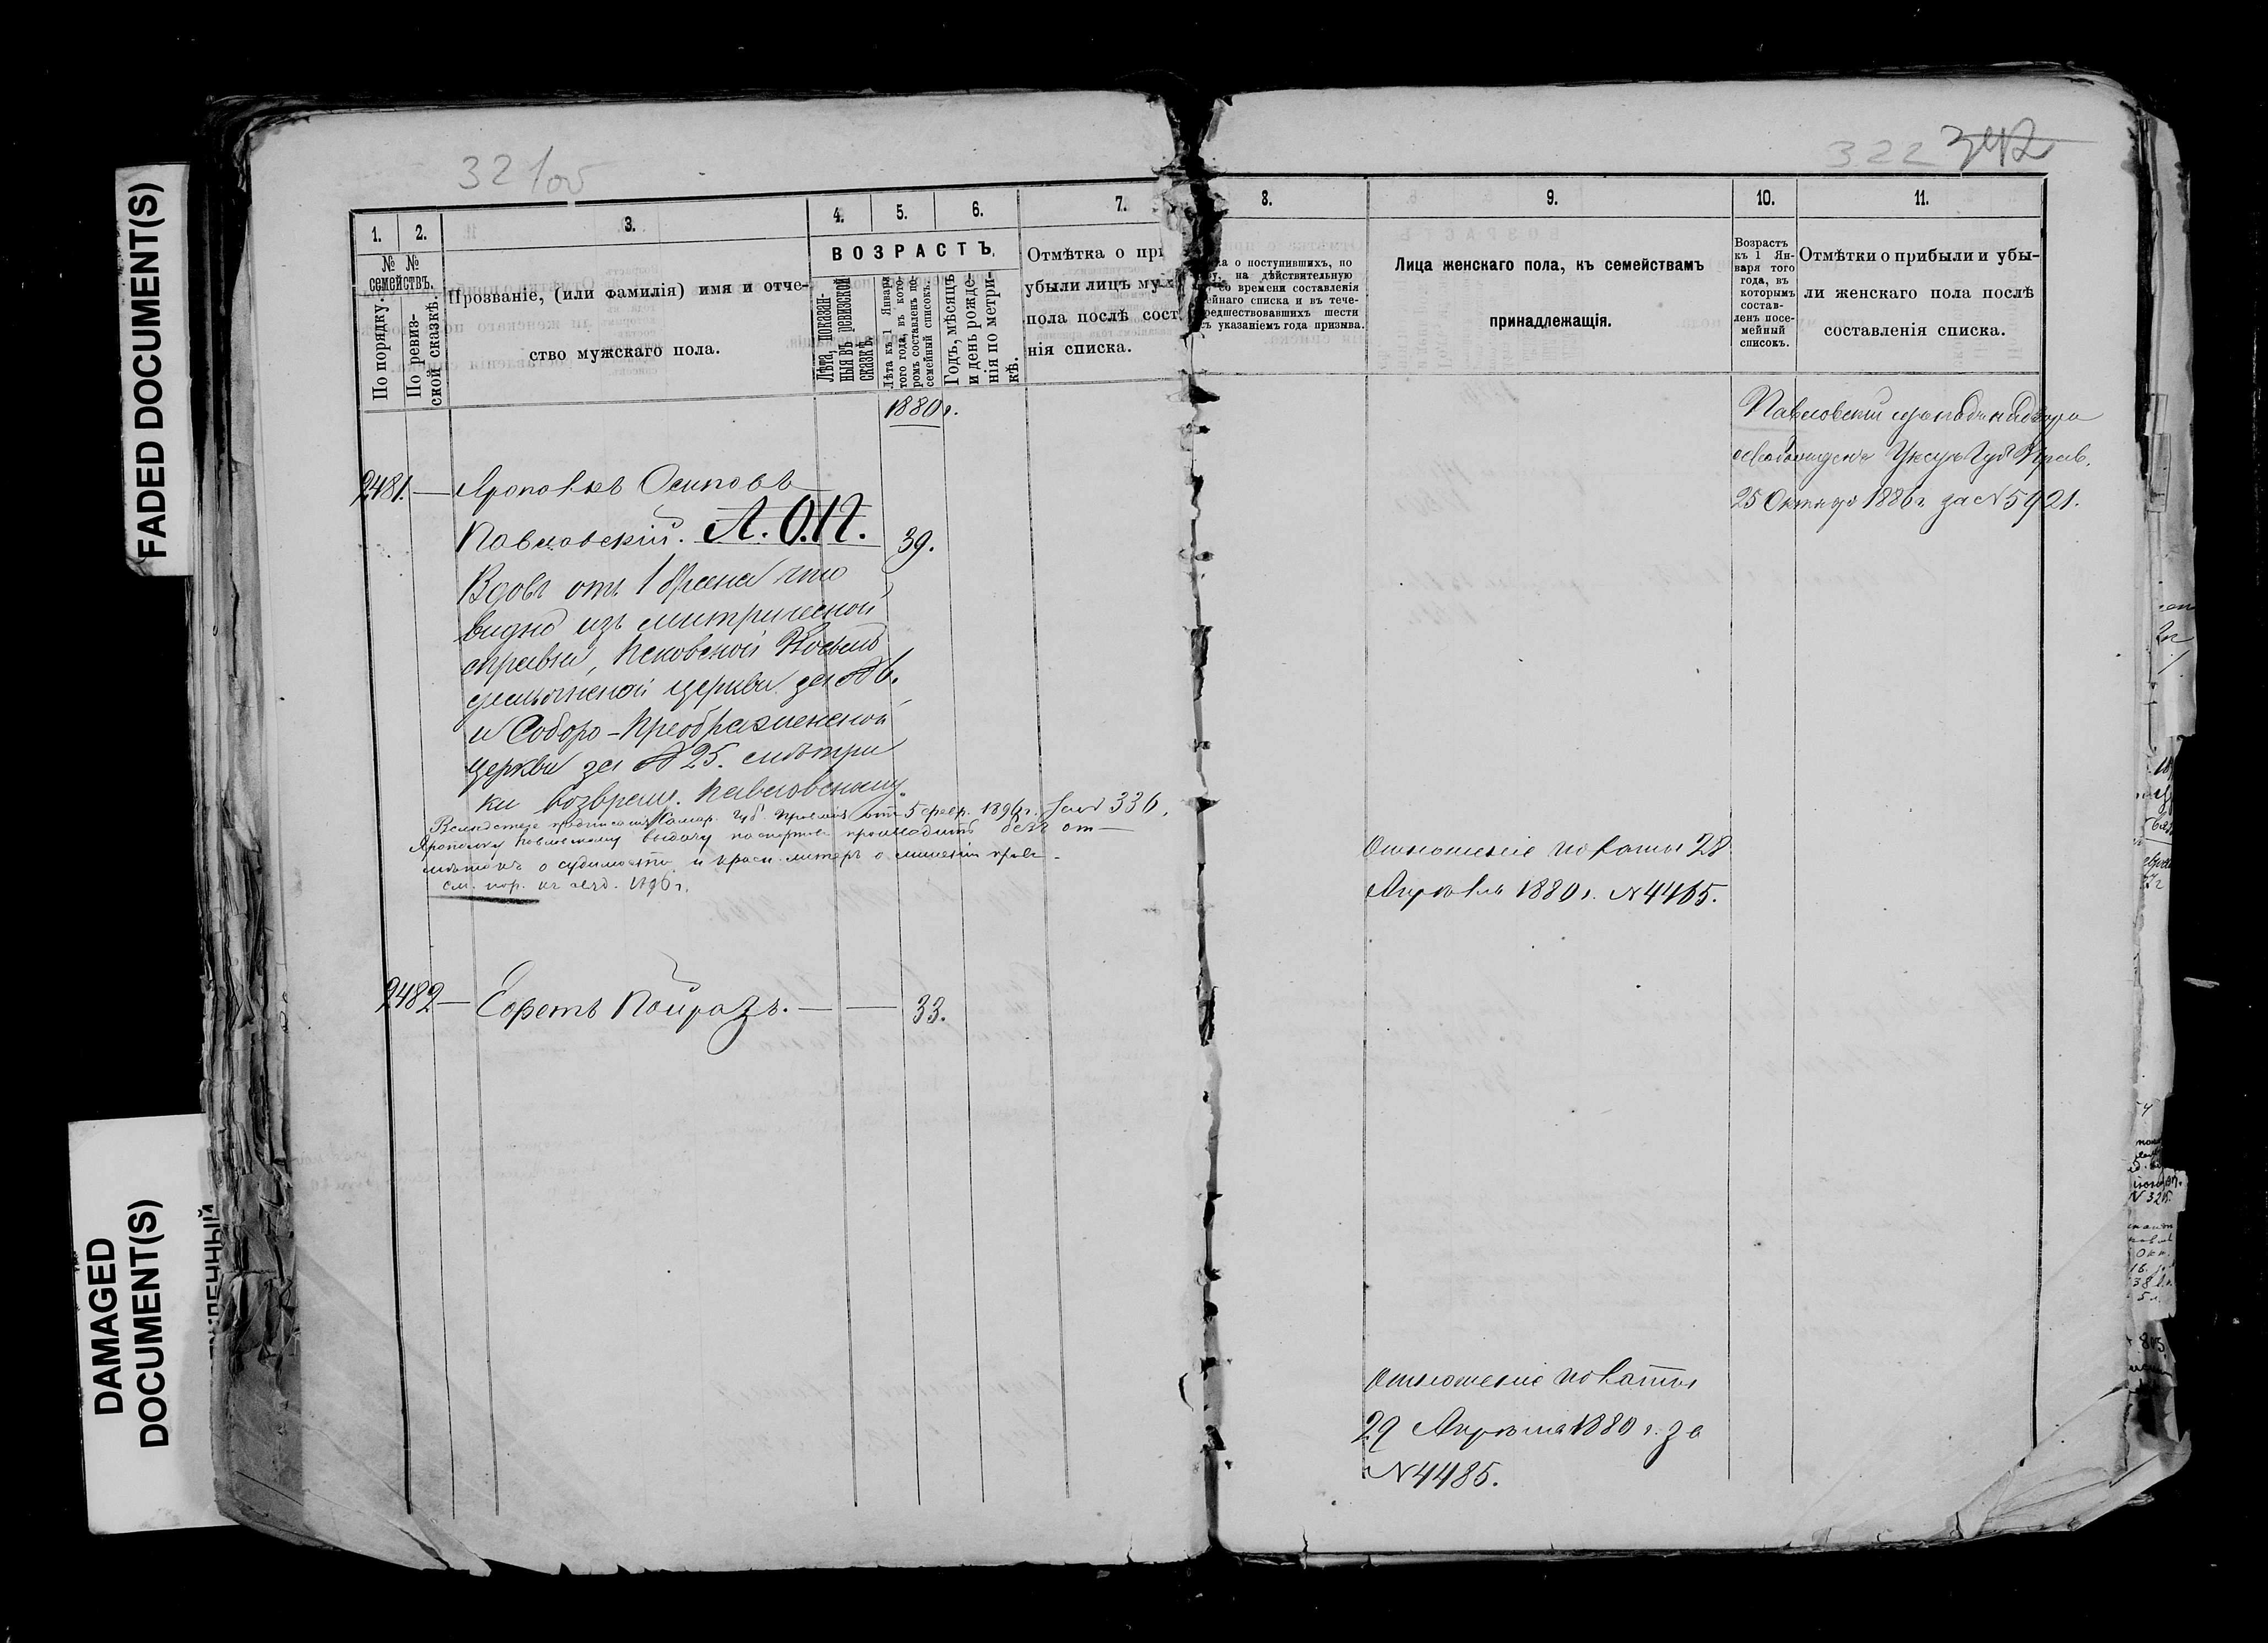 FADED DOCUMENT(S)
DAMAGED
DOCUMENT(S)
321об
1.
2.
3.
4.
5.
6.
7.
№ №
семействъ.
По порядку.
По ревиз-
ской сказкѣ.
Прозваніе, (или фамилія) имя и отче-
ство мужскаго пола.
ВОЗРАСТЪ.
Лѣта, показан-
ныя въ ревизской
сказкѣ.
Лѣта къ 1 Января
того года, въ кото-
ромъ составленъ по-
семейный списокъ.
Годъ, мѣсяцъ
и день рожде-
нія по метри-
кѣ.
Отмѣтка о при
убыли лицъ му
пола послѣ сост.
нія списка.
1880 г.
2481. — Осиповъ
Павловскій. А. О. П. 39.
Вдовъ отъ 1 брака что
видно изъ митрической
справки, Псковской Космо
демьянской церкви за № 6.
и Соборо-Преображенской
церкви за № 25. митри
ки возвращ. Павловскому.
Вслѣдствіе предписанія Самар. Губ. Правленія отъ 5 февр. 1896 г. за № 336.
Павловскому выдачу паспортовъ производить безъ от-
мѣтокъ о судимости и
см. 1896 г.
2482 — 33.
322 342
8.
9.
10.
11.
а о поступившихъ, по
у, на дѣйствительную
со времени составленія
ейнаго списка и въ тече-
редшествовавшихъ шести
съ указаніемъ года призыва.
Лица женскаго пола, къ семействамъ
принадлежащія.
Возрастъ
къ 1 Ян-
варя того
года, въ
которомъ
состав-
ленъ посе-
мейный
списокъ.
Отмѣтки о прибыли и убы-
ли женскаго пола послѣ
составленія списка.
Павловскій отъ надзора
освобожденъ Указъ Губ. Прав.
25 Октября 1886 г. за № 5921.
Отношеніе палаты 28
Апрѣля 1880 г. № 4465.
Отношеніе палаты
29 Апрѣля 1880 г. за
№ 4485.